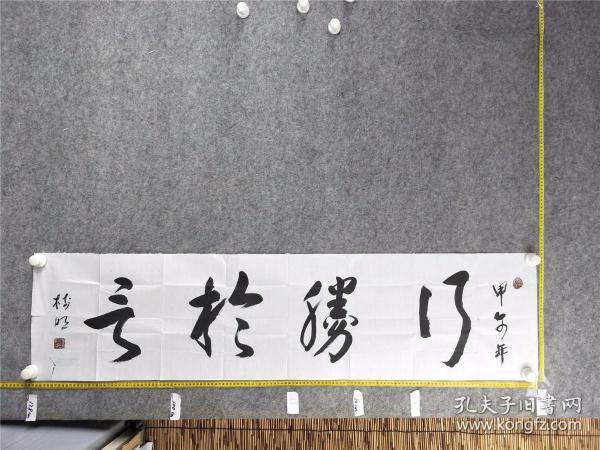 甲午年
行勝於言
樹明
孔夫子旧書网
www.kongfz.com